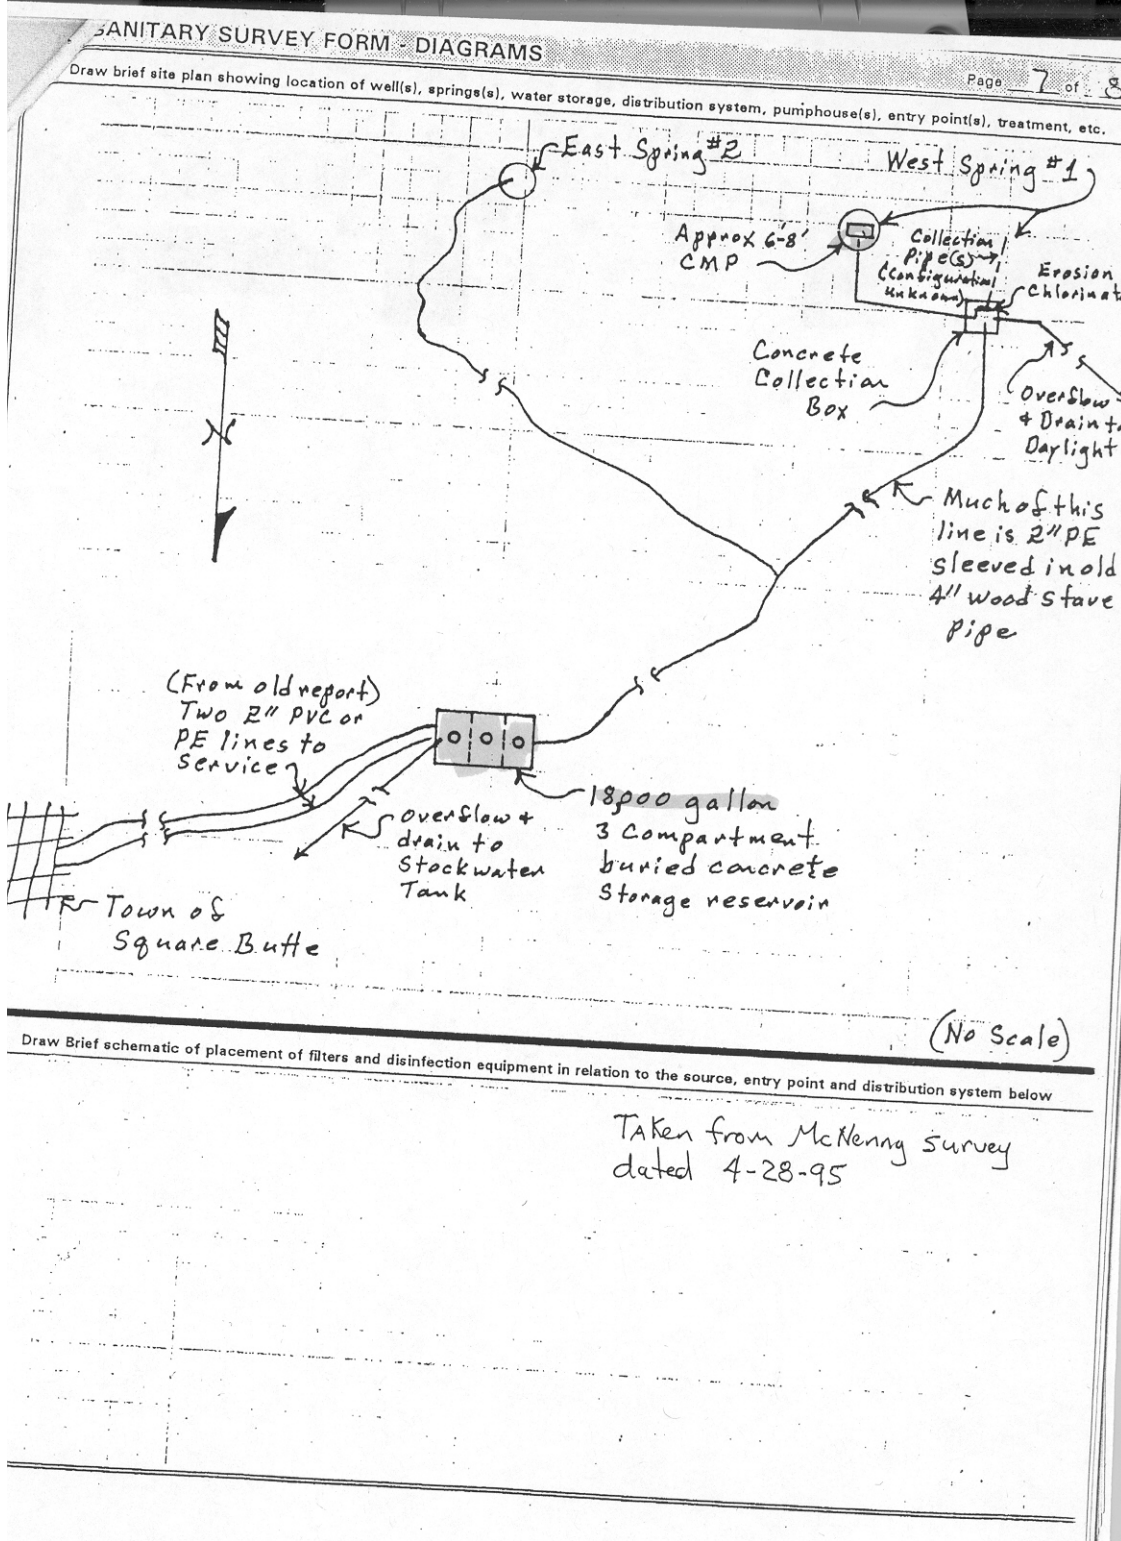 SANITARY SURVEY FORM - DIAGRAMS
Page 7 of 8
Draw brief site plan showing location of well(s), springs(s), water storage, distribution system, pumphouse(s), entry point(s), treatment, etc.
East Spring #2
West Spring #1
Approx 6-8'
CMP
Collection
Pipe(s)
(Configuration
unknown)
Erosion
Chlorinat
Concrete
Collection
Box
Overflow
& Drain to
Daylight
N
Much of this
line is 2" PE
sleeved in old
4" wood stave
pipe
(From old report)
Two 2" PVC or
PE lines to
Service
18,000 gallon
3 Compartment
buried concrete
Storage reservoir
Overflow &
drain to
Stockwater
Tank
Town of
Square Butte
(No Scale)
Draw Brief schematic of placement of filters and disinfection equipment in relation to the source, entry point and distribution system below
Taken from McNenny survey
dated 4-28-95